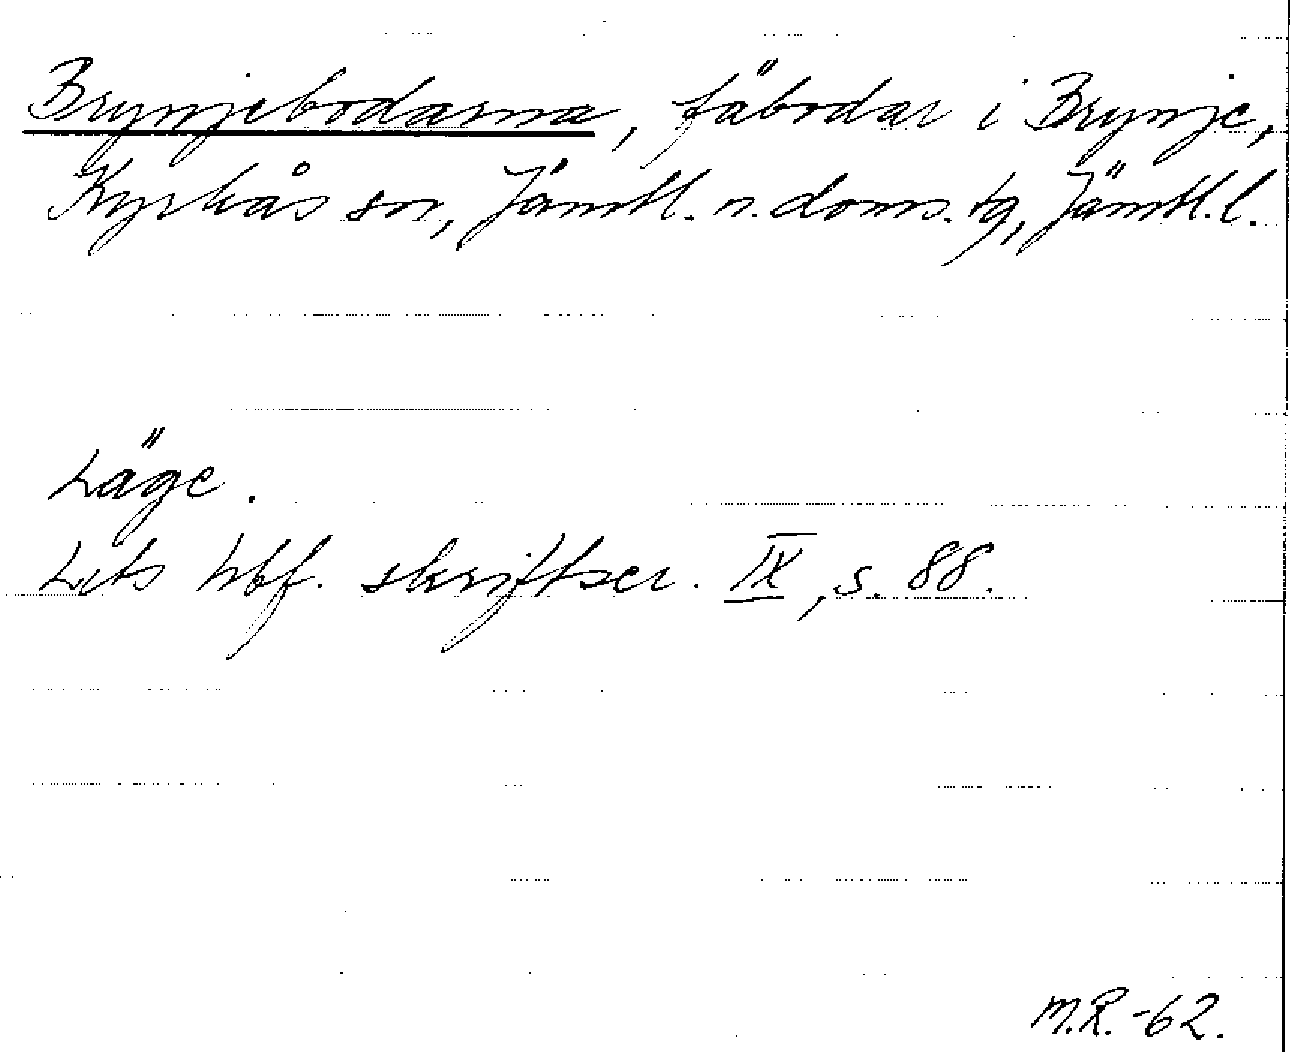 Brynjebodarna, fäbodar i Brynje,
Kyrkås sn, Jämtl. n. doms. tg, Jämtl. l.
Läge.
Lits hbf. skriftser. IX, s. 88.
M.R.-62.